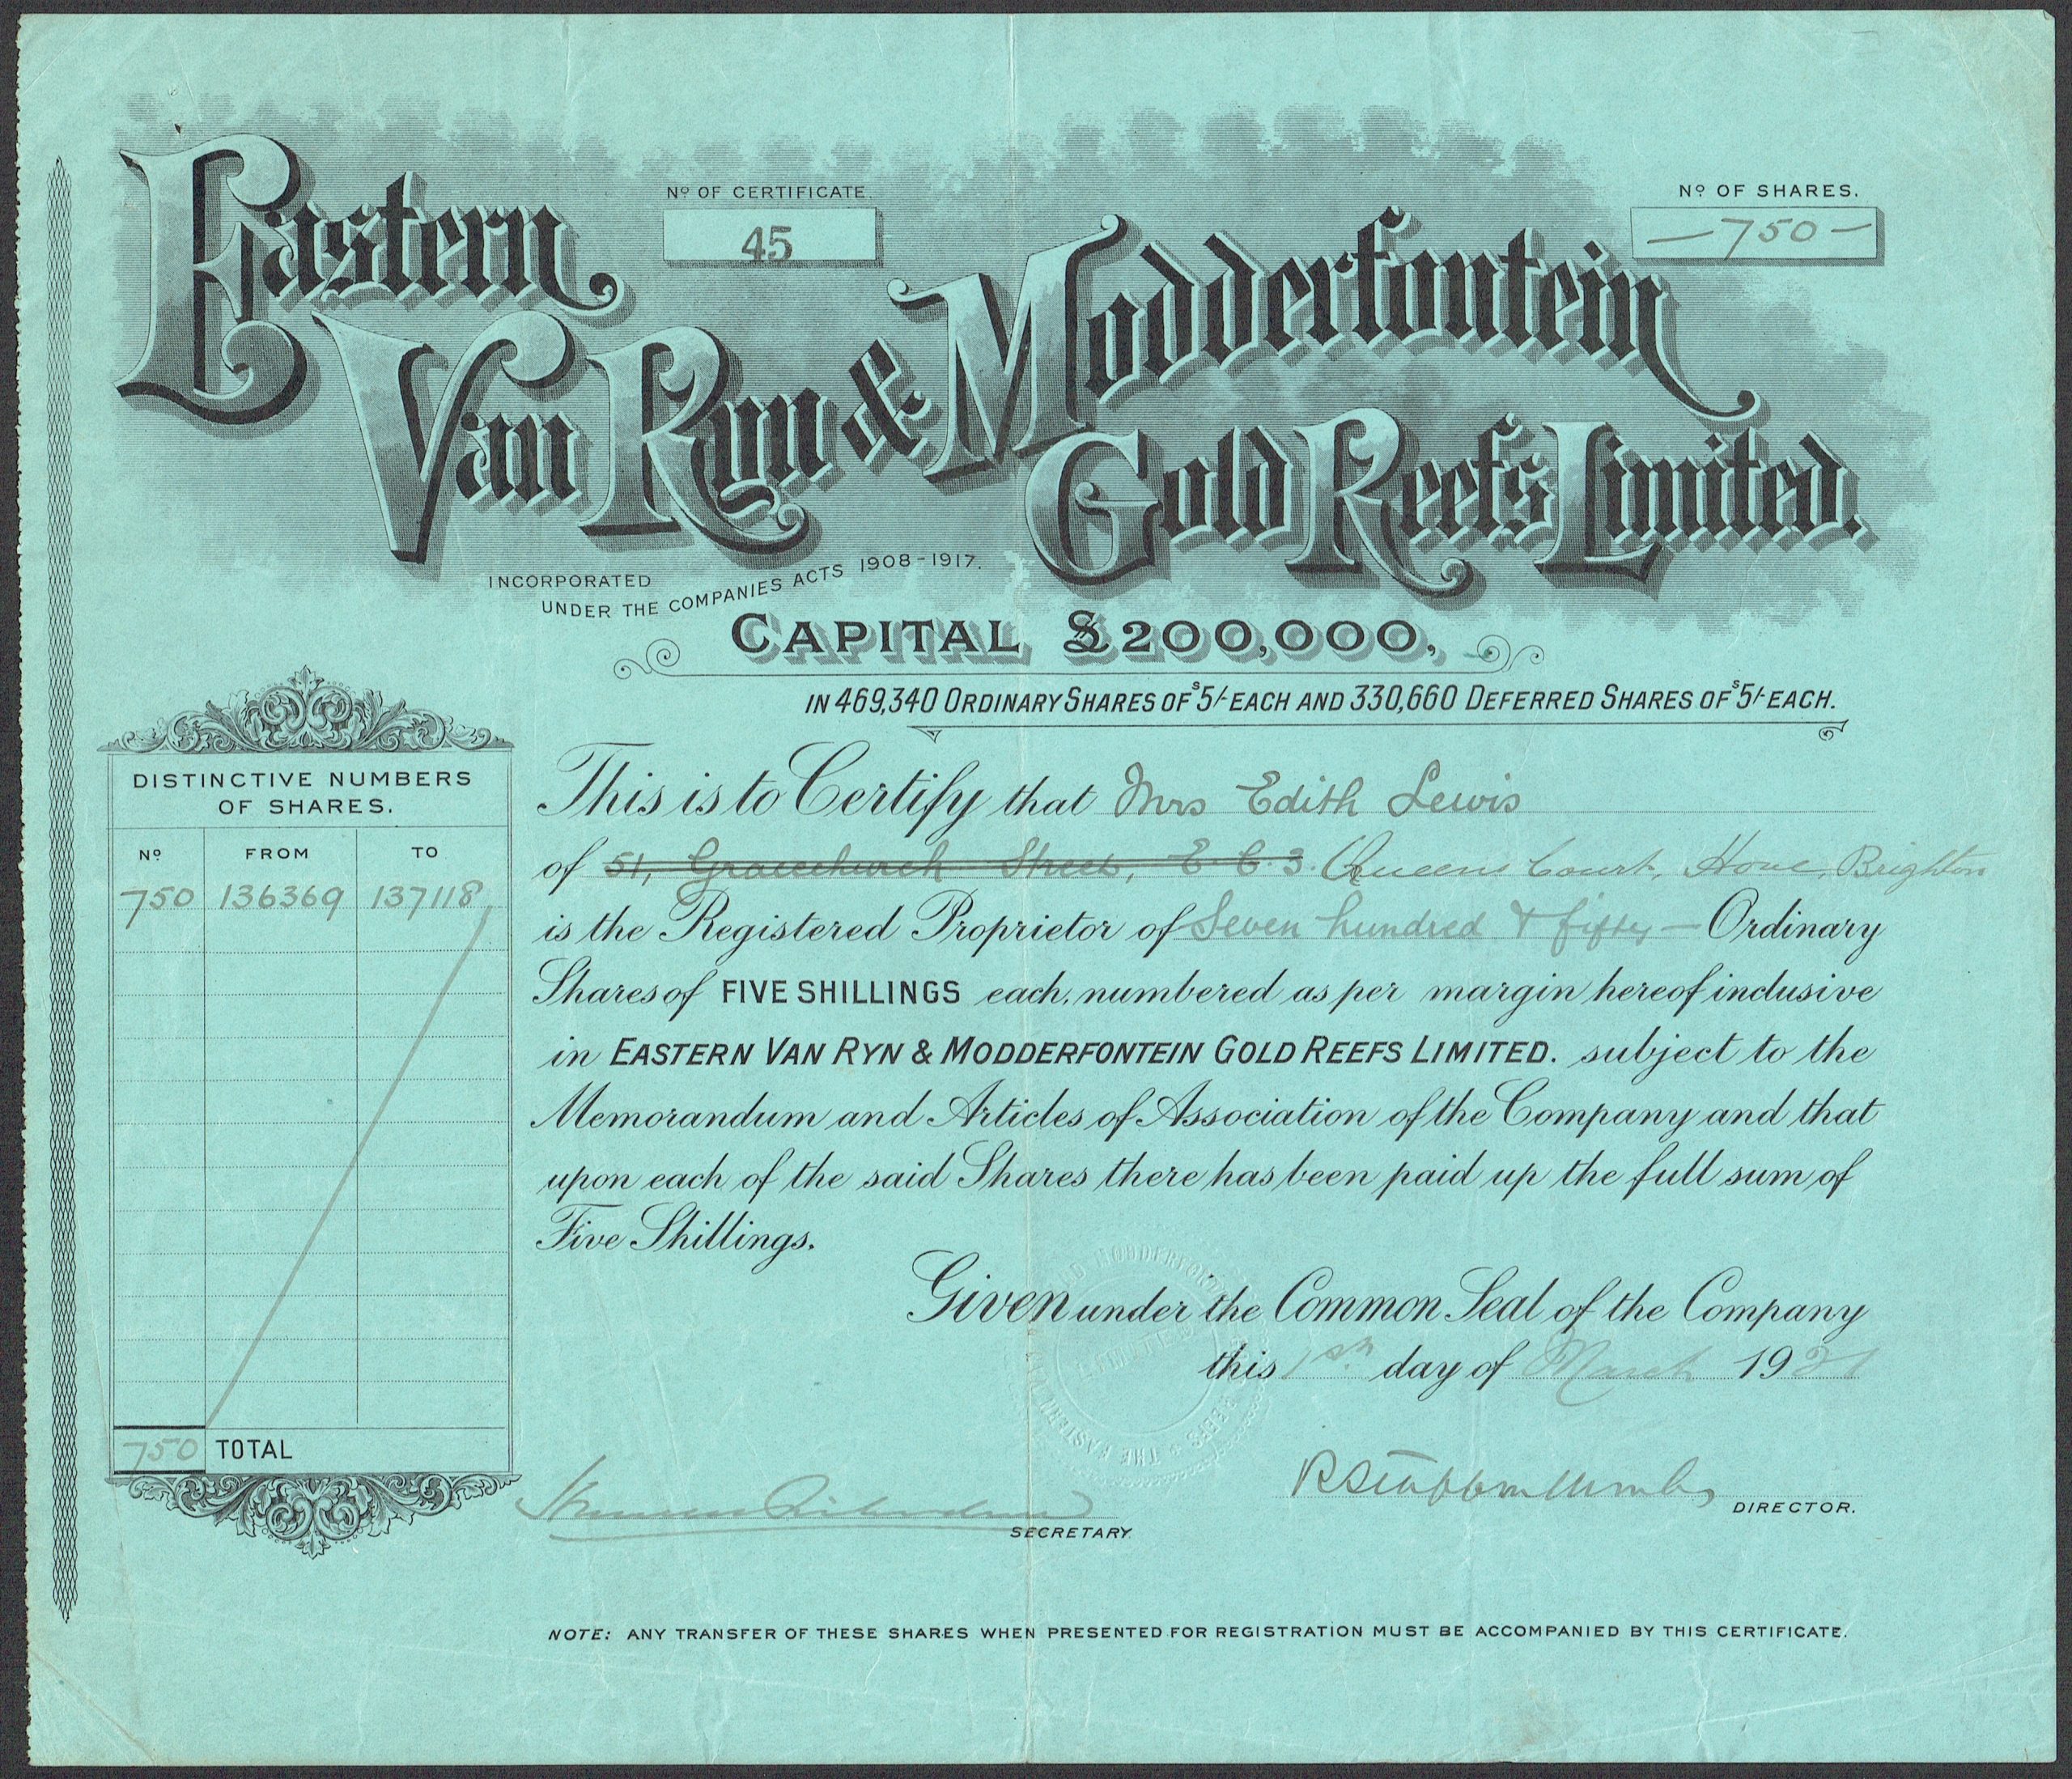 Eastern
Nº OF CERTIFICATE.
45
Nº OF SHARES.
—750—
Van Ryn & Modderfontein
Gold Reefs Limited.
INCORPORATED
UNDER THE COMPANIES ACTS 1908-1917.
CAPITAL £200,000,
IN 469,340 ORDINARY SHARES OF 5/- EACH AND 330,660 DEFERRED SHARES OF 5/- EACH.
DISTINCTIVE NUMBERS
OF SHARES.
Nº FROM TO
750 136369 137118
750 TOTAL
This is to Certify that Mrs Edith Lewis
of 51, Gracechurch Street, E.C.3. Queens Court, Hove, Brighton
is the Registered Proprietor of Seven hundred & fifty — Ordinary
Shares of FIVE SHILLINGS each, numbered as per margin hereof inclusive
in EASTERN VAN RYN & MODDERFONTEIN GOLD REEFS LIMITED. subject to the
Memorandum and Articles of Association of the Company and that
upon each of the said Shares there has been paid up the full sum of
Five Shillings.
Given under the Common Seal of the Company
this 1st day of March 1921
SECRETARY.
DIRECTOR.
NOTE: ANY TRANSFER OF THESE SHARES WHEN PRESENTED FOR REGISTRATION MUST BE ACCOMPANIED BY THIS CERTIFICATE.